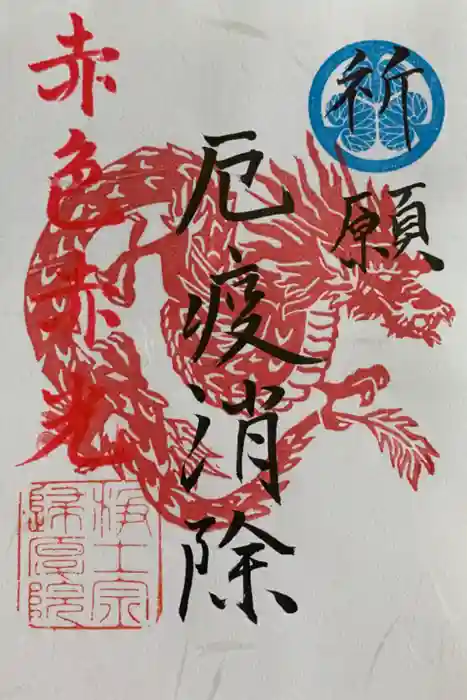 祈願
厄疫消除
赤色赤光
浄土宗
帰厚院